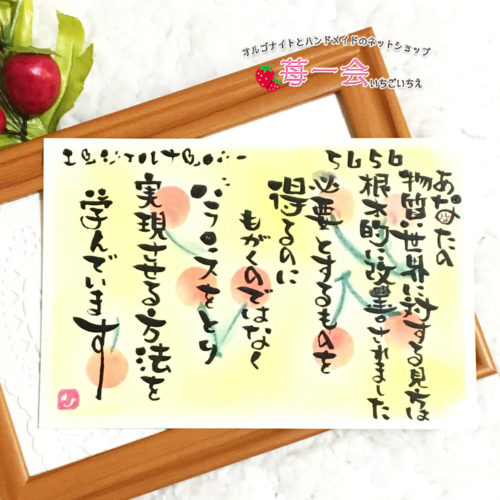 オルゴナイトとハンドメイドのネットショップ
苺一会 いちごいちえ
エンジェルナンバー 5656
あなたの
物質世界に対する見方は
根本的に改善されました
必要とするものを
得るのに
もがくのではなく
バランスをとり
実現させる方法を
学んでいます